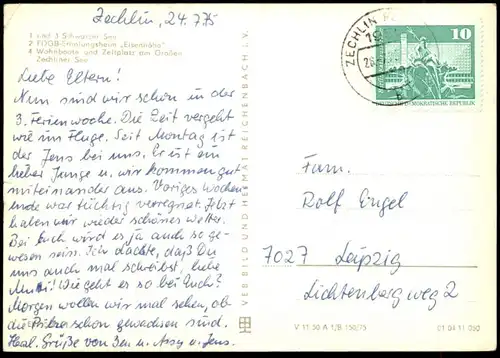 Zechlin, 24.7.75
1 und 3 Schwarzer See
2 FDGB-Erholungsheim „Eisenhöhe"
4 Wohnboote und Zeltplatz am Großen
Zechliner See
Liebe Eltern!
Nun sind wir schon in der
3. Ferienwoche. Die Zeit vergeht
wie im Fluge. Seit Montag ist
der Jens bei uns. Er ist ein
lieber Junge u. wir kommen gut
miteinander aus. Voriges Wochen
ende war tüchtig verregnet. Jetzt
haben wir wieder schönes Wetter.
Bei Euch wird es ja auch so ge-
wesen sein. Ich dachte, daß Du
uns auch mal schreibst, liebe
Mutti! Wie geht es so bei Euch?
Morgen wollen wir mal sehen, ob
die Pilze schon gewachsen sind.
Herzl. Grüße von u. Jens.
VEB BILD UND HEIMAT REICHENBACH I. V.
ZECHLIN
10
DEUTSCHE DEMOKRATISCHE REPUBLIK
Fam.
Rolf Engel
7027 Leipzig
Lichtenbergweg 2
V 11 50 A 1/B 150/75
01 04 11 050